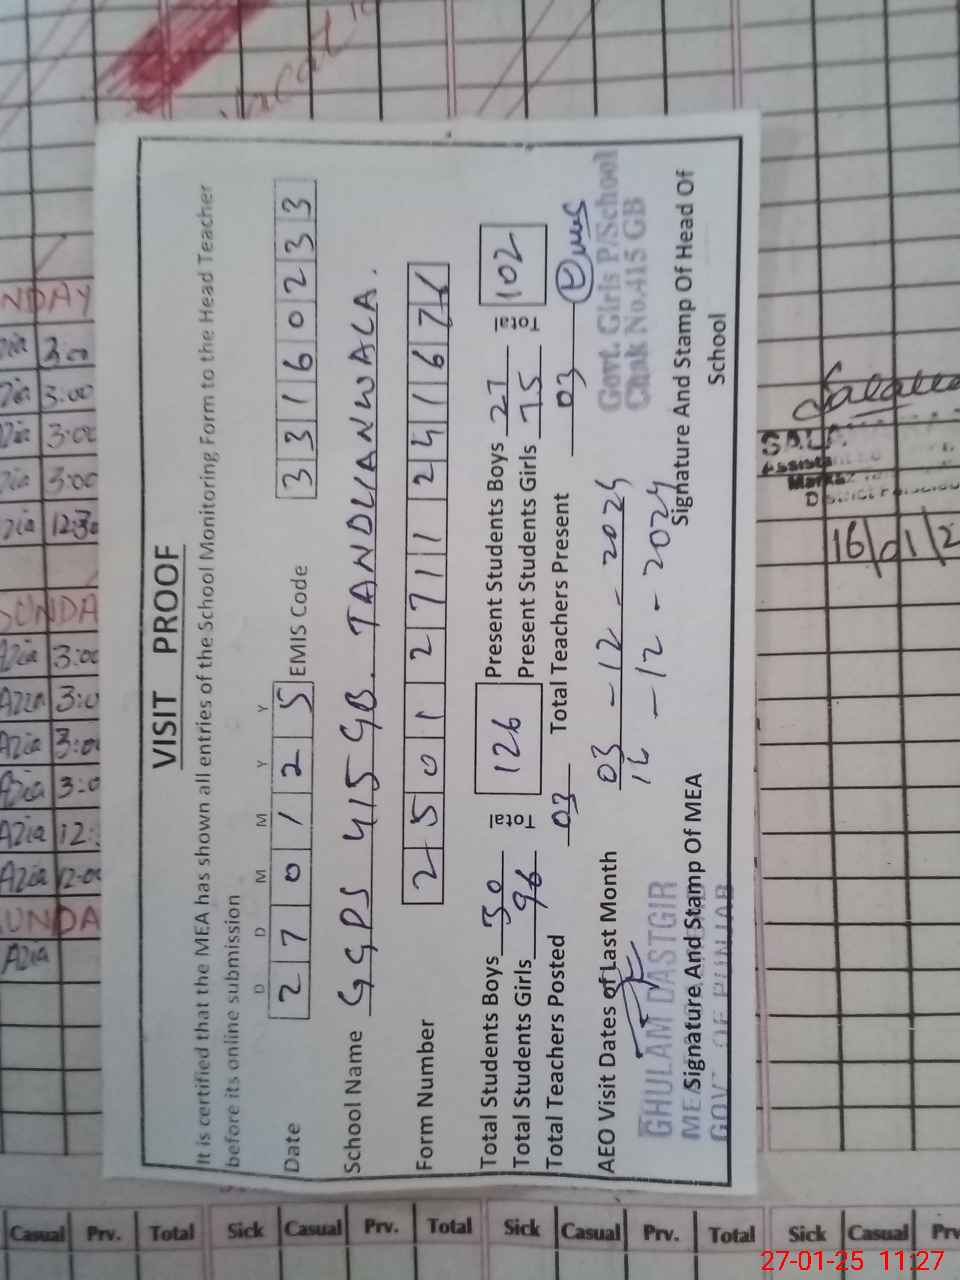 VISIT PROOF
It is certified that the MEA has shown all entries of the School Monitoring Form to the Head Teacher
before its online submission
D D M M Y Y
Date 2 7 0 1 2 5 EMIS Code 3 3 1 6 0 2 3 3
School Name GGPS 415 GB. TANDLIANWALA.
Form Number 2 5 0 1 2 7 1 1 2 4 1 6 7 6
Total Students Boys 30 Total 126 Present Students Boys 27 Total 102
Total Students Girls 96 Present Students Girls 75
Total Teachers Posted 03 Total Teachers Present 03
AEO Visit Dates of Last Month 03-12-2024
16-12-2024
GHULAM DASTGIR
Govt. Girls P/School
Chak No.415 GB
Signature And Stamp Of MEA
GOVT. OF PUNJAB
Signature And Stamp Of Head Of
School
NDAY
3:00
3:00
3:00
3:00
12:30
SUNDA
Azia 3:00
Azia 3:0
Azia 3:00
Azia 3:0
Azia 12:
Azia 12:00
SUNDA
Azia
16/01/2
Casual Prv. Total Sick Casual Prv. Total Sick Casual Prv. Total Sick Casual Prv
27-01-25 11:27